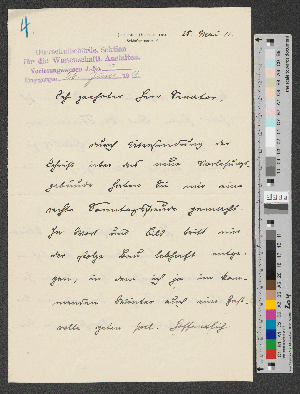 4.
28. Mai 11.
Oberschulbehörde, Sektion
für die Wissenschaftl. Anstalten.
Vorlesungswesen
Eingegangen
Sehr geehrter Herr Senator,
durch Übersendung der
Schrift über das neue Vorlesungs-
gebäude haben Sie mir eine
rechte Sonntagsfreude gemacht.
In Wort und Bild tritt mir
der stolze Bau lebhaft entge-
gen, in dem ich ja im kom-
menden Winter auch eine Gast-
rolle geben soll. Hoffentlich